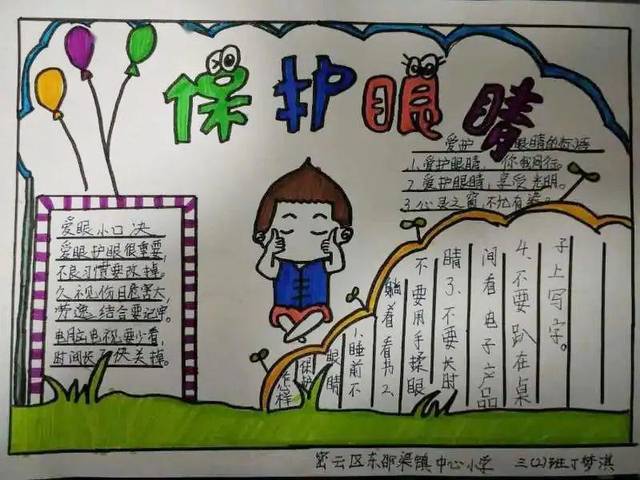 保护眼睛
爱护 眼睛的标语
1、爱护眼睛，你我同行。
2、爱护眼睛，享受光明。
3、心灵之窗，不
爱眼小口决
爱眼护眼很重要，
不良习惯要改掉。
久视伤目危害大，
劳逸结合要记牢。
电脑电视要少看，
时间长 快关掉。
怎样
保护
眼睛
1.睡前不
躺着看书2、
不要用手揉眼
睛3、不要长时
间看电子产品
4、不要趴在桌
子上写字。
密云区东邵渠镇中心小学 三(2)班丁梦淇